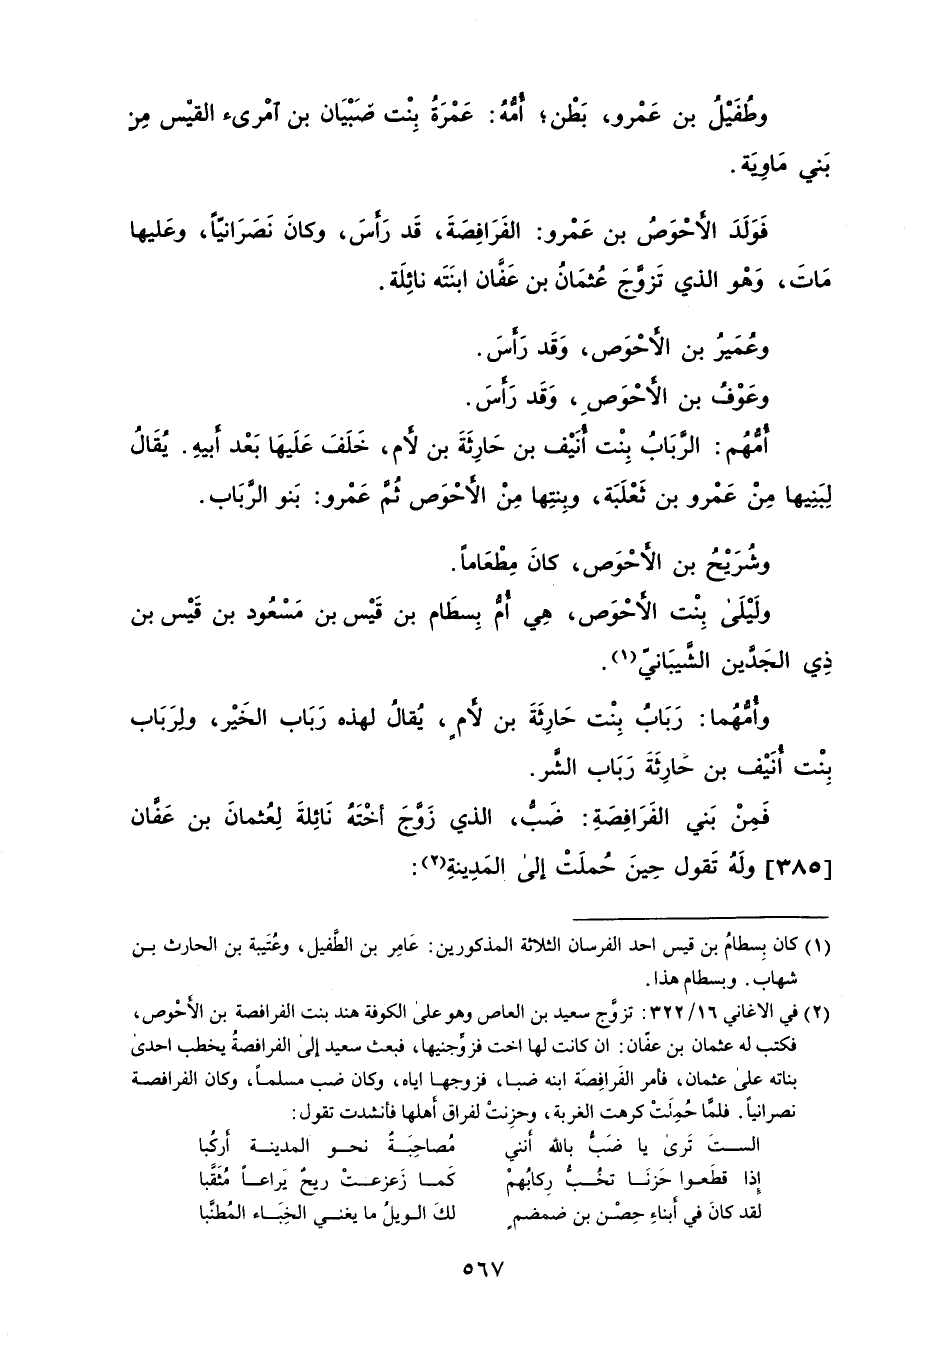 وطُفَيْلُ بن عَمْرو، بَطْن؛ أُمُّهُ: عَمْرَةُ بِنْت صَبْيَان بن آمْرىء القيْس مِن
بَني مَاوِيَة.
فَوَلَدَ الأَحْوَصُ بن عَمْرو: الفَرَافِصَةَ، قَد رَأَسَ، وكانَ نَصَرَانيّاً، وعَليها
مَاتَ، وَهْو الذي تَزوَّجَ عُثمَانُ بن عَفَّان ابنَتَه نائِلَة.
وعُمَيرُ بن الأَحْوَص، وَقَد رَأَسَ.
وعَوْفُ بن الأَحْوَصِ، وَقَد رَأَسَ.
أُمُّهُم: الرَّبَابُ بِنْت أُنَيْف بن حَارِثَةَ بن لأَم، خَلَفَ عَلَيهَا بَعْد أَبيهِ. يُقَالُ
لِبَنِيها مِنْ عَمْرو بن ثَعْلَبَة، وبِنتِها مِنْ الأَحْوَص ثُمَّ عَمْرو: بَنو الرَّبَاب.
وشُرَيْحُ بن الأَحْوَص، كانَ مِطْعَاماً.
ولَيْلَىٰ بِنْت الأَحْوَص، هِي أُمُّ بِسطَام بن قَيْس بن مَسْعُود بن قَيْس بن
ذِي الجَدَّين الشَّيبَانيّ(١).
وأُمُّهُما: رَبَابُ بِنْت حَارِثَةَ بن لأَمٍ، يُقالُ لهذه رَبَاب الخَيْر، ولِرَبَاب
بِنْت أُنَيْف بن حَارِثَةَ رَبَاب الشَّر.
فَمِنْ بَني الفَرَافِصَةِ: ضَبُّ، الذي زَوَّجَ أختَهُ نَائِلةَ لِعُثمانَ بن عَفَّان
[٣٨٥] ولَهُ تَقول حِينَ حُملَتْ إلىٰ المَدِينةِ(٢):
(١) كان بِسطامُ بن قيس احد الفرسان الثلاثة المذكورين: عَامِر بن الطَّفيل، وعُتَيبة بن الحارث بن
شهاب. وبسطام هذا.
(٢) في الاغاني ٣٢٢/١٦: تزوَّج سعيد بن العاص وهو علىٰ الكوفة هند بنت الفرافصة بن الأَحْوص،
فكتب له عثمان بن عفّان: ان كانت لها اخت فزوِّجنيها، فبعث سعيد إلىٰ الفرافصةُ يخطب احدىٰ
بناته علىٰ عثمان، فأمر الفَرافِصَة ابنه ضبا، فزوجها اياه، وكان ضب مسلماً، وكان الفرافصة
نصرانياً. فلمَّا حُمِلَتْ كرهت الغربة، وحزِنتْ لفراق أهلها فأنشدت تقول:
الستَ تَرىٰ يا ضَبُّ بالله أَنني مُصاحِبَةُ نحو المدينة أركُبا
إذا قطَعوا حَزنَا تخُبُّ رِكابُهمْ كَما زَعزعتْ ريحُ يَراعاً مُثقَّبا
لقد كانَ في أَبناءِ حِصْن بن ضمضمٍ لكَ الويلُ ما يغني الخِبَاء المُطنَّبا
٥٦٧